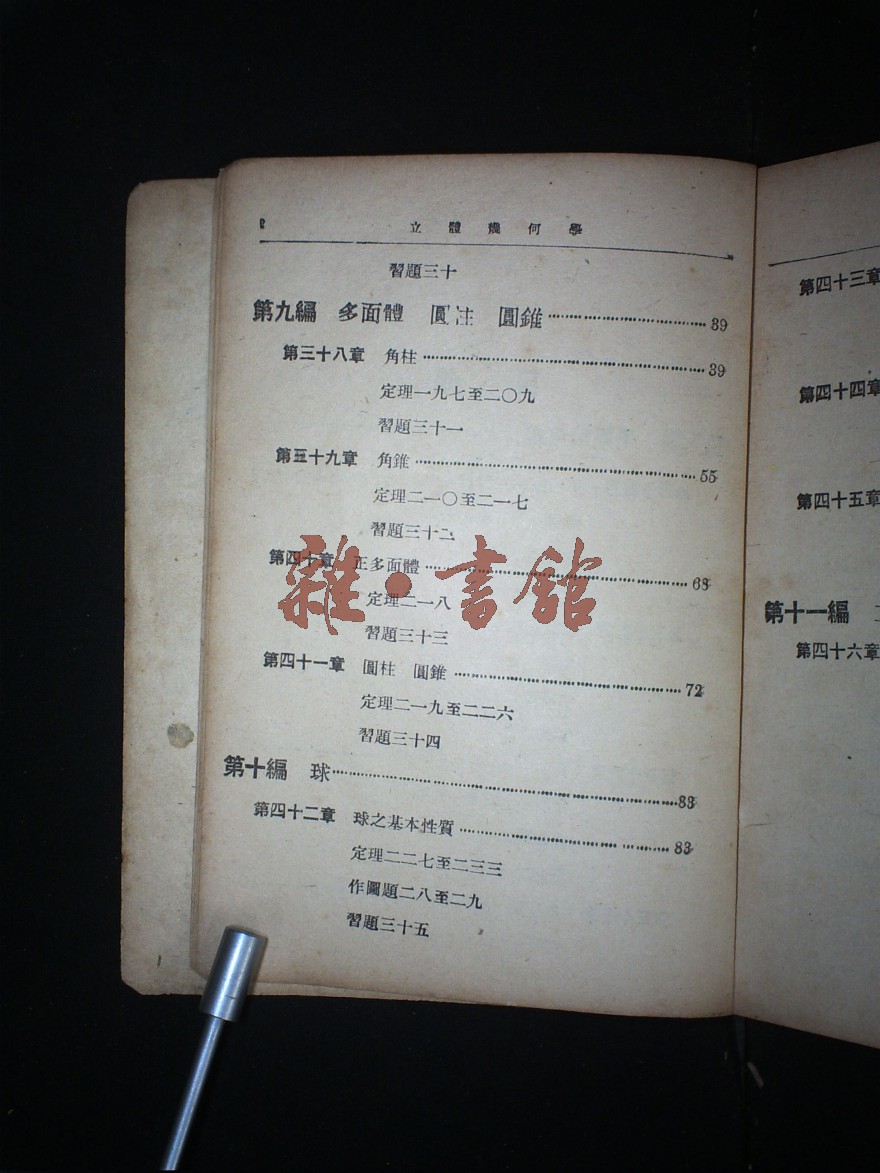 立體幾何學
習題三十
第九編 多面體 圓柱 圓錐 39
第三十八章 角柱 39
定理一九七至二〇九
習題三十一
第三十九章 角錐 55
定理二一〇至二一七
習題三十二
第四十章 正多面體 68
定理二一八
習題三十三
第四十一章 圓柱 圓錐 72
定理二一九至二二六
習題三十四
第十編 球 83
第四十二章 球之基本性質 83
定理二二七至二三三
作圖題二八至二九
習題三十五
雜·書館
第四十三章
第四十四章
第四十五章
第十一編
第四十六章